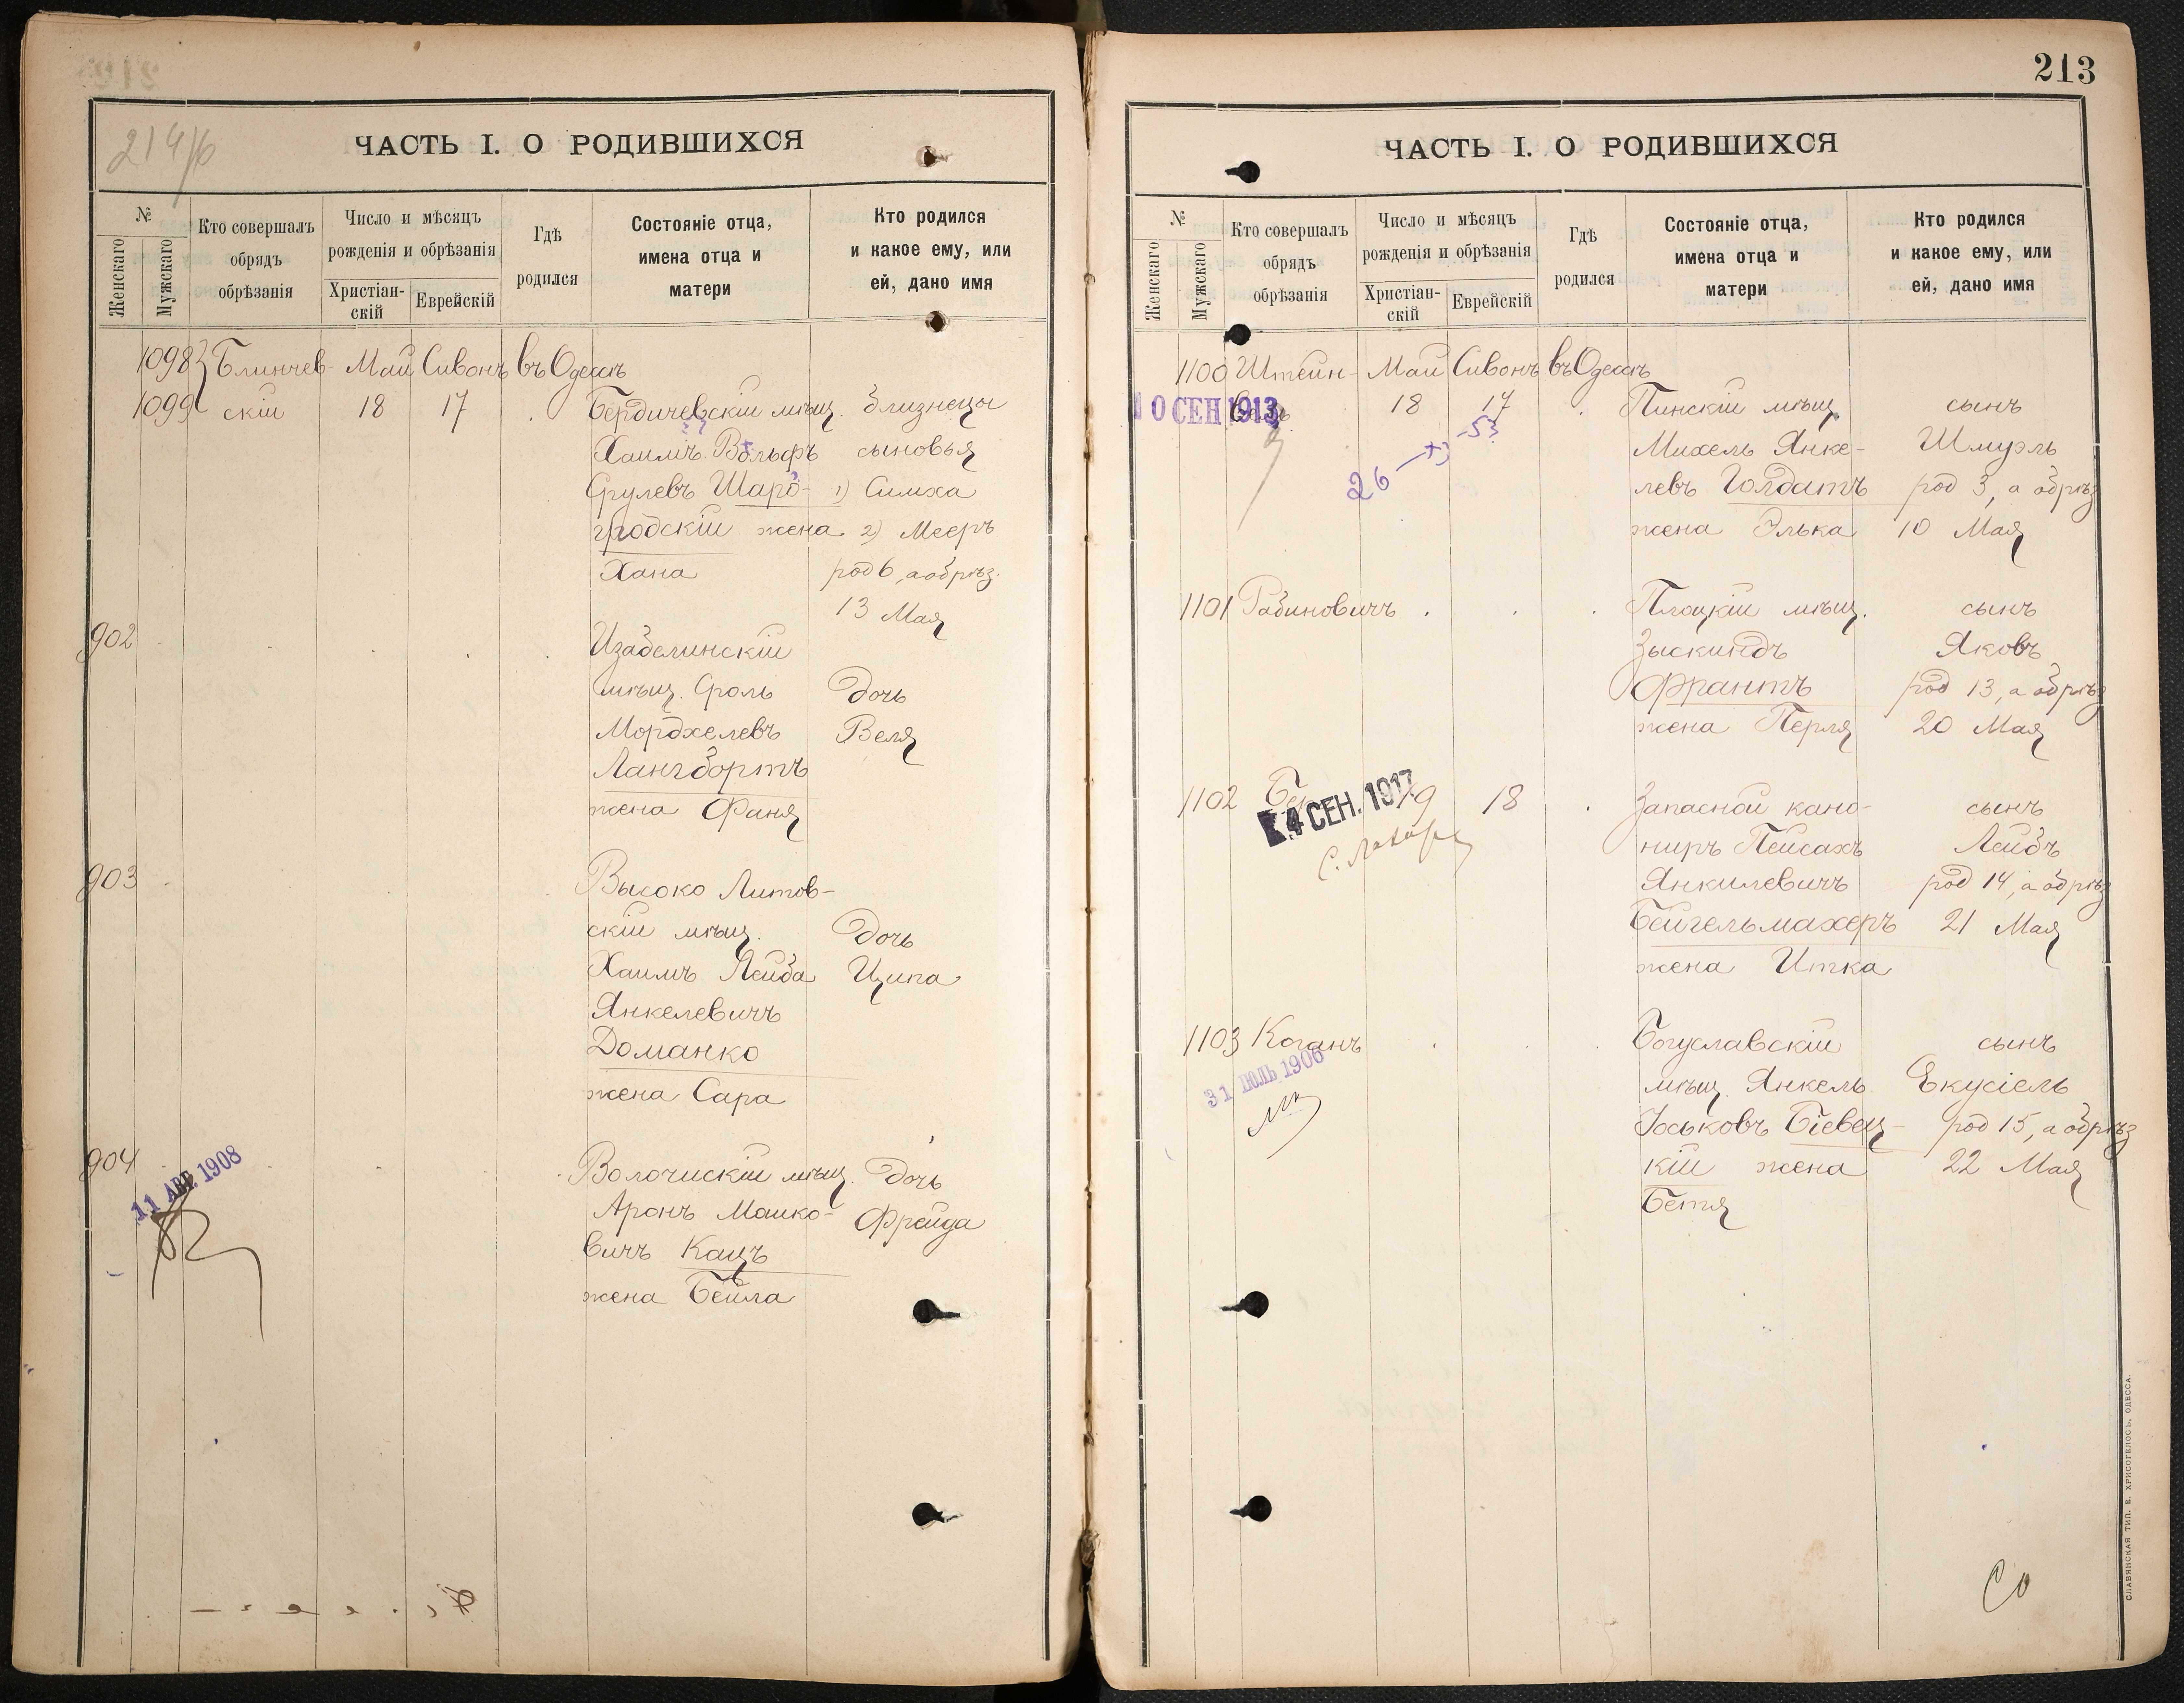 214/б
ЧАСТЬ I. О РОДИВШИХСЯ
№
Женскаго
Мужскаго
Кто совершалъ
обрядъ
обрѣзанія
Число и мѣсяцъ
рожденія и обрѣзанія
Христіан-
скій
Еврейскій
Гдѣ
родился
Состояніе отца,
имена отца и
матери
Кто родился
и какое ему, или
ей, дано имя
1098 Блинчев- Май Сивонъ въ Одессѣ
1099 скій 18 17 Бердичевскій мѣщ. близнецы
Хаимъ Вольфъ сыновья
Срулевъ Шаро- 1) Симха
гродскій жена 2) Мееръ
Хана род 6, а обрѣз.
13 Мая
902 Изабелинскій
мѣщ. Сроль Дочь
Мордхелевъ Веля
Лангбортъ
жена Фаня
903 Высоко Литов-
скій мѣщ. Дочь
Хаимъ Лейба Ципа
Янкелевичъ
Доманко
жена Сара
904 Волочискій мѣщ. Дочь
11 АВГ. 1908
Аронъ Мошко- Фрейда
вичъ Кацъ
жена Бейла
213
ЧАСТЬ I. О РОДИВШИХСЯ
№
Женскаго
Мужскаго
Кто совершалъ
обрядъ
обрѣзанія
Число и мѣсяцъ
рожденія и обрѣзанія
Христіан-
скій
Еврейскій
Гдѣ
родился
Состояніе отца,
имена отца и
матери
Кто родился
и какое ему, или
ей, дано имя
1100 Штейн- Май Сивонъ въ Одессѣ
10 СЕН 1913 18 17 Пинскій мѣщ. сынъ
Михель Янке- Шмуэль
26 левъ Голдатъ род 3, а обрѣз
жена Элька 10 Мая
1101 Рабиновичъ Плоцкій мѣщ. сынъ
Зыскиндъ Яковъ
Франтъ род 13, а обрѣз
жена Перля 20 Мая
1102 19 18 Запасной кано- сынъ
4 СЕН. 1917
ниръ Пейсахъ Лейбъ
Янкилевичъ род 14, а обрѣз
Бейгельмахеръ 21 Мая
жена Итка
1103 Коганъ Богуславскій сынъ
31 ІЮЛЬ 1906
мѣщ. Янкель Екусіель
Іоськовъ Біевец- род 15, а обрѣз
кій жена 22 Мая
Бетя
СЛАВЯНСКАЯ ТИП. Е. ХРИСОГЕЛОСЪ, ОДЕССА.